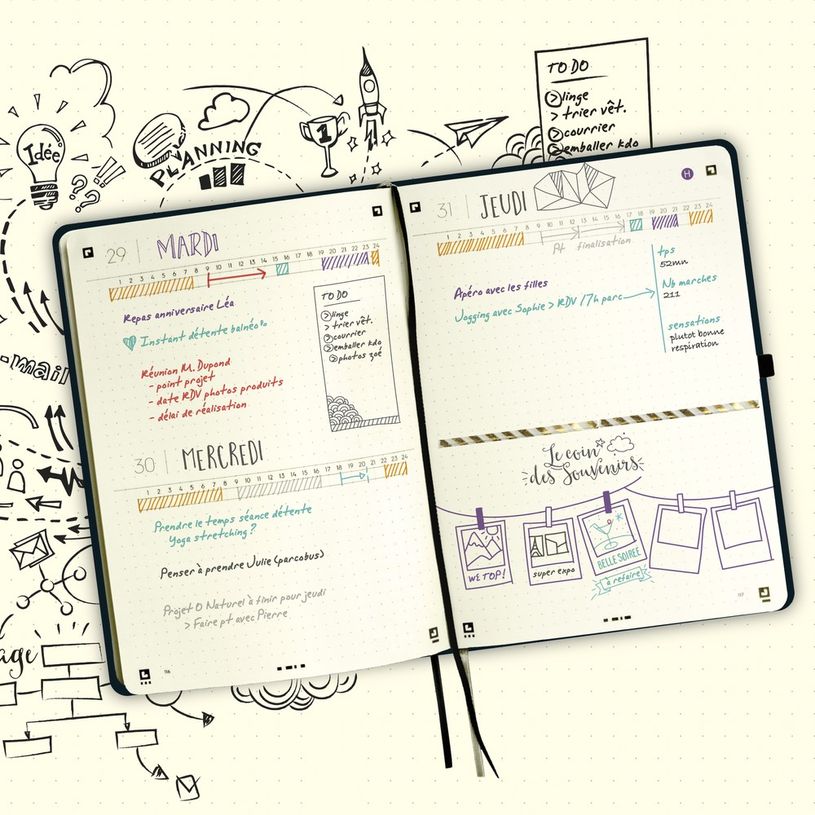 Idée
PLANNING
1
-mail
age
TO DO
linge
> trier vêt.
courrier
emballer kdo
29 MARDI
1 2 3 4 5 6 7 8 9 10 11 12 13 14 15 16 17 18 19 20 21 22 23 24
Repas anniversaire Léa
Instant détente balnéo
Réunion M. Dupond
- point projet
- date RDV photos produits
- délai de réalisation
TO DO
> linge
> trier vêt.
> courrier
> emballer kdo
> photos zoé
30 MERCREDI
1 2 3 4 5 6 7 8 9 10 11 12 13 14 15 16 17 18 19 20 21 22 23 24
Prendre le temps séance détente
Yoga stretching ?
Penser à prendre Julie (parcobus)
Projet O Naturel à finir pour jeudi
> Faire pt avec Pierre
116
31 JEUDI
H
1 2 3 4 5 6 7 8 9 10 11 12 13 14 15 16 17 18 19 20 21 22 23 24
Pt finalisation
Apéro avec les filles
Jogging avec Sophie > RDV 17h parc
tps
52mn
Nb marches
211
sensations
plutot bonne
respiration
Le coin
des Souvenirs
WE TOP!
super expo
BELLE SOIREE
à refaire
117